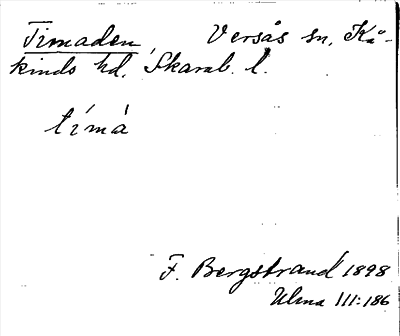 Timaden, Versås sn, Kå-
kinds hd, Skarab. l.
tímá
F. Bergstrand 1898
Ulma III:186